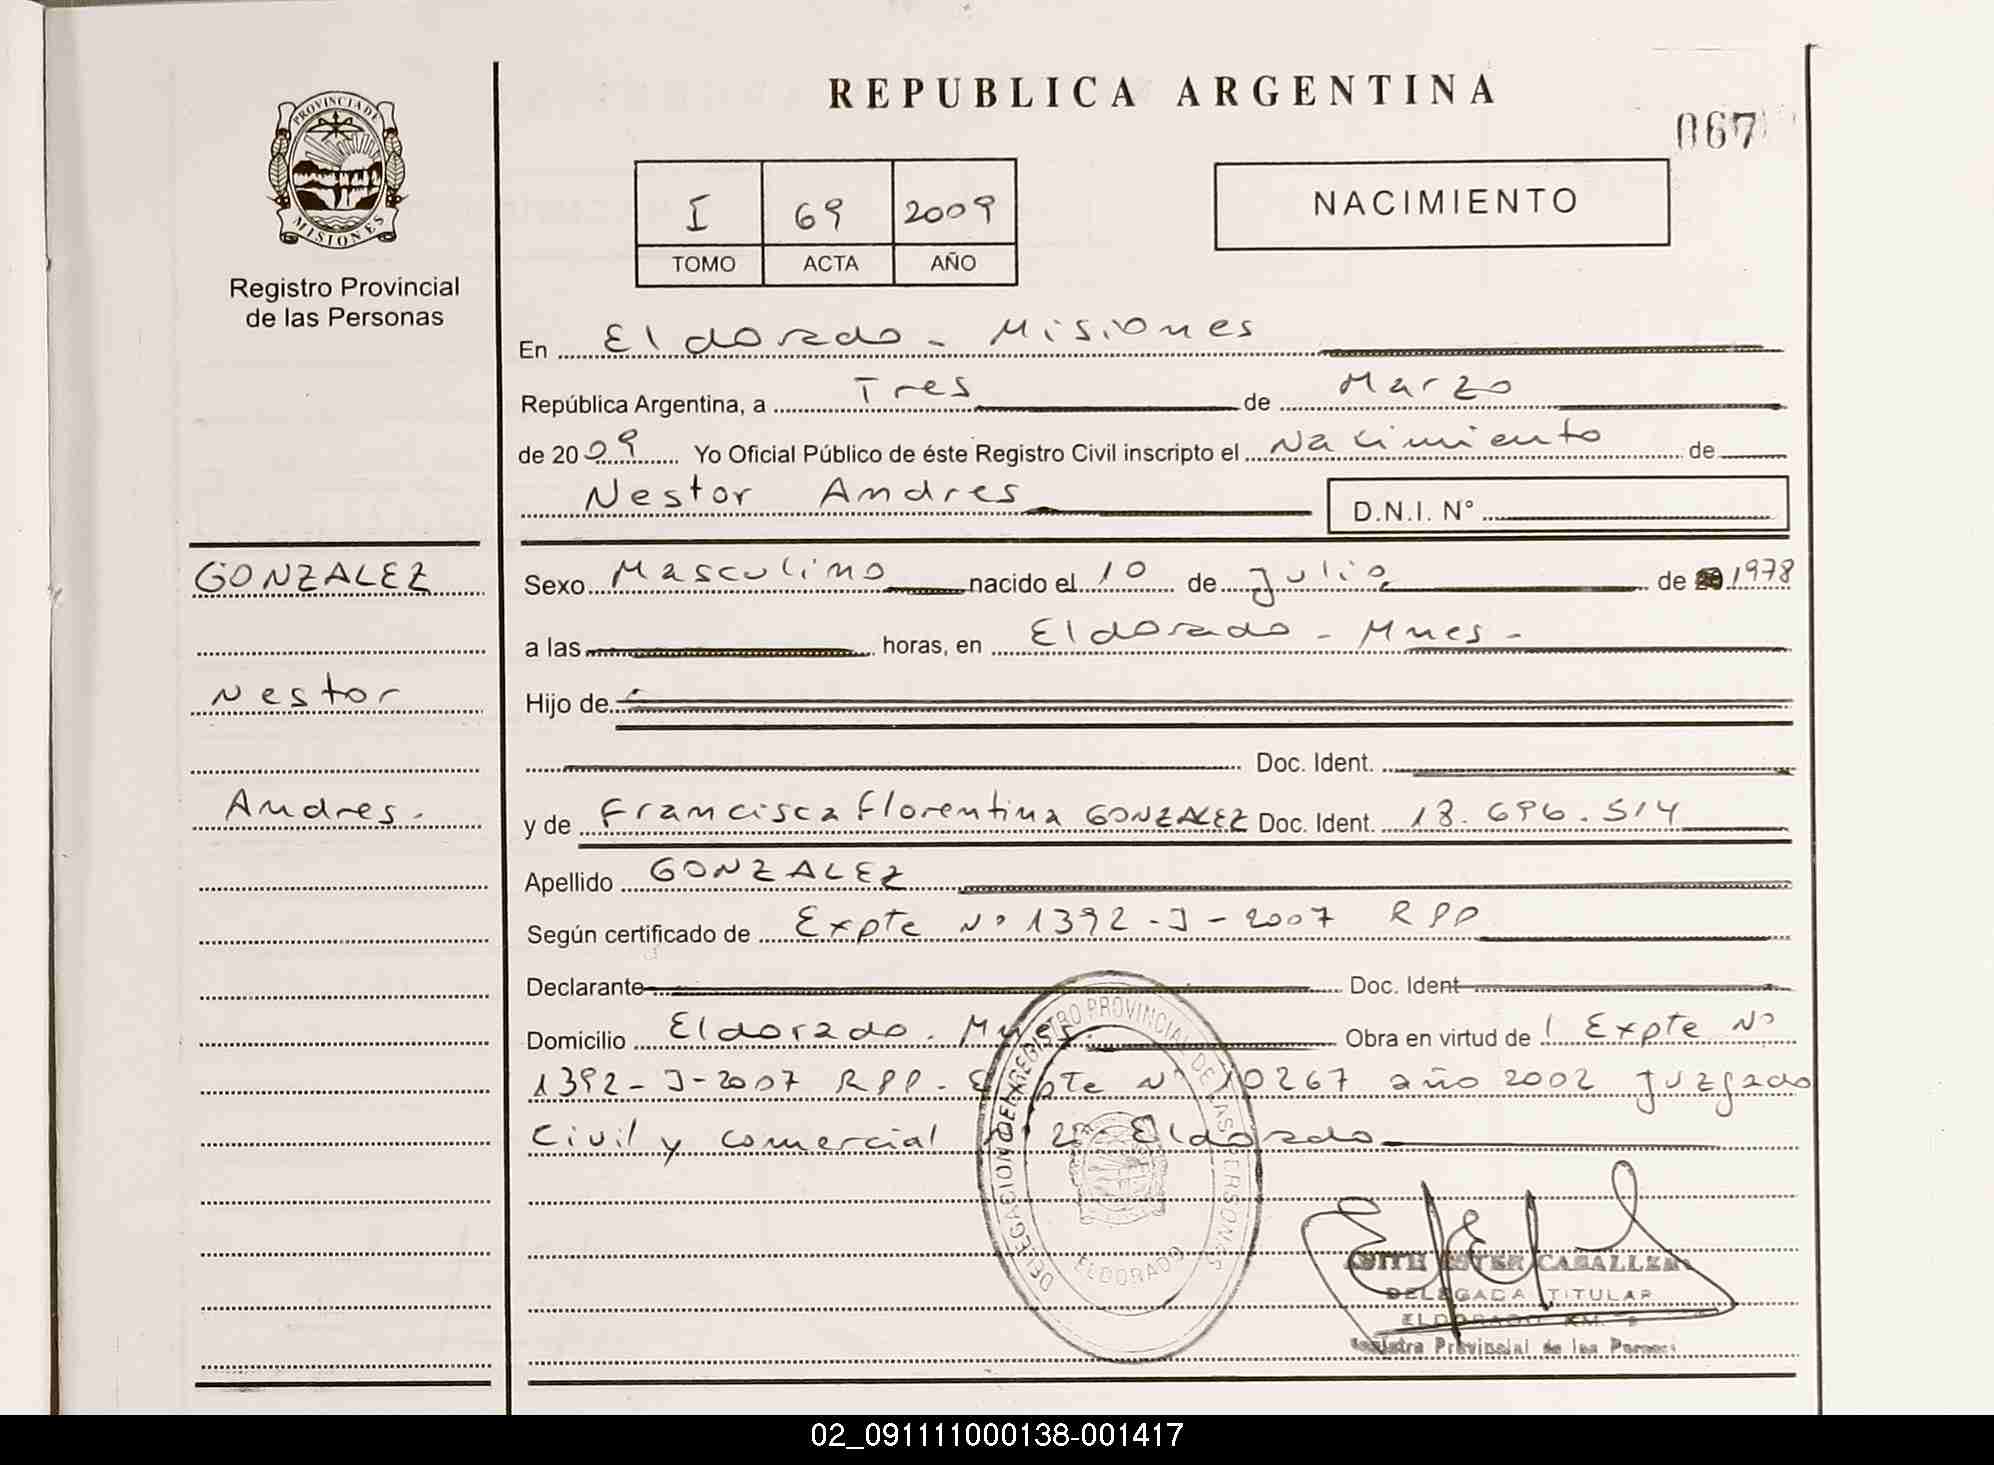 REPUBLICA ARGENTINA
067
PROVINCIA DE
MISIONES
Registro Provincial
de las Personas
I 69 2009
TOMO ACTA AÑO
NACIMIENTO
En Eldorado - Misiones
República Argentina, a Tres de Marzo
de 2009 Yo Oficial Público de éste Registro Civil inscripto el Nacimiento de
Nestor Andres D.N.I. N°
GONZALEZ
Nestor
Andres.
Sexo Masculino nacido el 10 de Julio de 1978
a las horas, en Eldorado - Mnes -
Hijo de
Doc. Ident.
y de Francisca Florentina GONZALEZ Doc. Ident. 18.696.514
Apellido GONZALEZ
Según certificado de Expte N° 1392-J-2007 RPP
Declarante Doc. Ident
Domicilio Eldorado. Mnes. Obra en virtud de Expte N°
1392-J-2007 RPP. Expte N° 10267 año 2002 Juzgado
Civil y Comercial N° 2 Eldorado
DELEGACION DEL REGISTRO PROVINCIAL DE LAS PERSONAS
ELDORADO
EDITH ESTER CABALLERO
DELEGADA TITULAR
ELDORADO KM.
Registro Provincial de las Personas
02_091111000138-001417